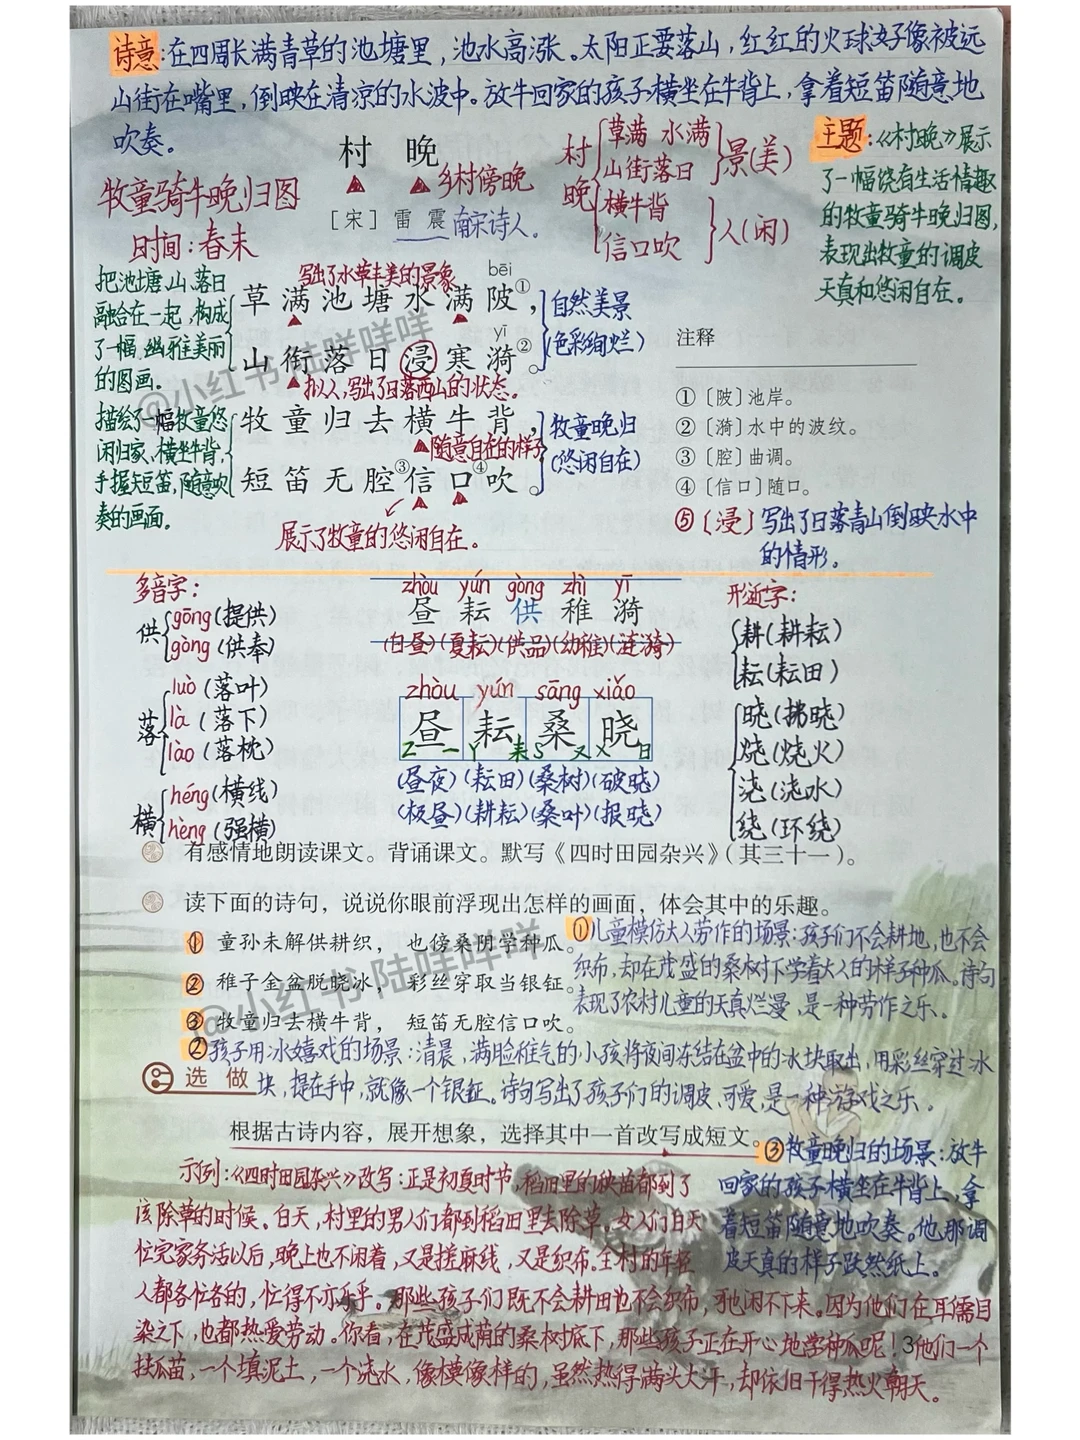 诗意:在四周长满青草的池塘里，池水高涨。太阳正要落山，红红的火球好像被远
山衔在嘴里，倒映在清凉的水波中。放牛回家的孩子横坐在牛背上，拿着短笛随意地
吹奏。
村 晚
乡村傍晚
[宋] 雷 震 南宋诗人。
牧童骑牛晚归图
时间：春末
村晚
草满 水满
山衔落日
景(美)
横牛背
信口吹
人(闲)
主题:《村晚》展示
了一幅饶有生活情趣
的牧童骑牛晚归图,
表现出牧童的调皮
天真和悠闲自在。
把池塘、山、落日
融合在一起，构成
了一幅幽雅美丽
的图画。
写出了水草丰美的景象
bēi
草满池塘水满陂①，
yī
山衔落日浸寒漪②。
拟人，写出了日落西山的状态。
自然美景
(色彩绚烂)
描绘了一幅牧童悠
闲归家、横坐牛背，
手握短笛，随意吹
奏的画面。
牧童归去横牛背，
随意自在的样子
短笛无腔③信口④吹。
展示了牧童的悠闲自在。
牧童晚归
(悠闲自在)
注释
①〔陂〕池岸。
②〔漪〕水中的波纹。
③〔腔〕曲调。
④〔信口〕随口。
⑤〔浸〕写出了日落青山倒映水中
的情形。
多音字：
供
gōng(提供)
gòng(供奉)
落
luò(落叶)
là(落下)
lào(落枕)
横
héng(横线)
hèng(强横)
zhòu yún gòng zhì yī
昼 耘 供 稚 漪
(白昼)(夏耘)(供品)(幼稚)(涟漪)
zhòu yún sāng xiǎo
昼 耘 桑 晓
Z 一 Y 耒 S 又 X 日
(昼夜)(耘田)(桑树)(破晓)
(极昼)(耕耘)(桑叶)(报晓)
形近字：
耕(耕耘)
耘(耘田)
晓(拂晓)
烧(烧火)
浇(浇水)
绕(环绕)
有感情地朗读课文。背诵课文。默写《四时田园杂兴》（其三十一）。
读下面的诗句，说说你眼前浮现出怎样的画面，体会其中的乐趣。
① 童孙未解供耕织， 也傍桑阴学种瓜。
② 稚子金盆脱晓冰， 彩丝穿取当银钲。
③ 牧童归去横牛背， 短笛无腔信口吹。
①儿童模仿大人劳作的场景：孩子们不会耕地，也不会
织布，却在茂盛的桑树下学着大人的样子种瓜。诗句
表现了农村儿童的天真烂漫，是一种劳作之乐。
②孩子用冰嬉戏的场景：清晨，满脸稚气的小孩将夜间冻结在盆中的冰块取出，用彩丝穿过冰
块，提在手中，就像一个银钲。诗句写出了孩子们的调皮、可爱，是一种游戏之乐。
选 做
根据古诗内容，展开想象，选择其中一首改写成短文。
③牧童晚归的场景：放牛
回家的孩子横坐在牛背上，拿
着短笛随意地吹奏。他那调
皮天真的样子跃然纸上。
示例：《四时田园杂兴》改写：正是初夏时节，稻田里的秧苗都到了
该除草的时候。白天，村里的男人们都到稻田里去除草。女人们白天
忙完家务活以后，晚上也不闲着，又是搓麻线，又是织布。全村的年轻
人都各忙各的，忙得不亦乐乎。那些孩子们既不会耕田也不会织布，可也闲不下来。因为他们在耳濡目
染之下，也都热爱劳动。你看，在茂盛成荫的桑树底下，那些孩子正在开心地学种瓜呢！他们一个
扶瓜苗，一个填泥土，一个浇水，像模像样的，虽然热得满头大汗，却依旧干得热火朝天。
3
@小红书 陆咩咩咩
@小红书 陆咩咩咩